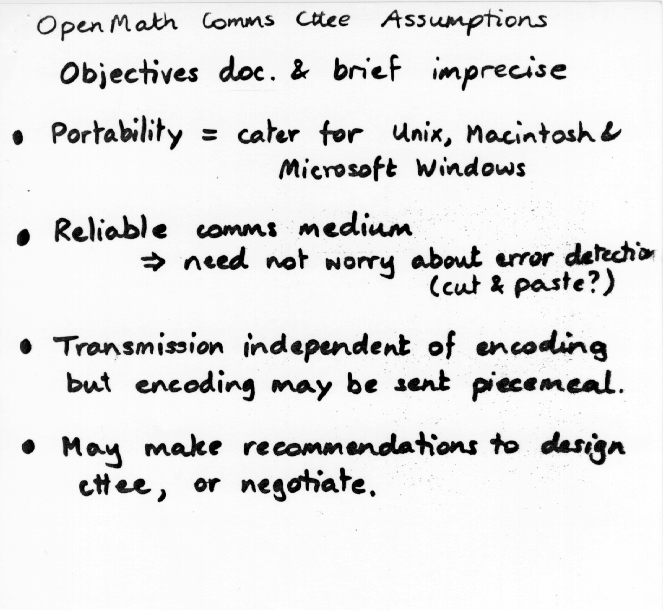 OpenMath Comms Cttee Assumptions
Objectives doc. & brief imprecise
• Portability = cater for Unix, Macintosh &
Microsoft Windows
• Reliable comms medium
⇒ need not worry about error detection
(cut & paste?)
• Transmission independent of encoding
but encoding may be sent piecemeal.
• May make recommendations to design
cttee, or negotiate.